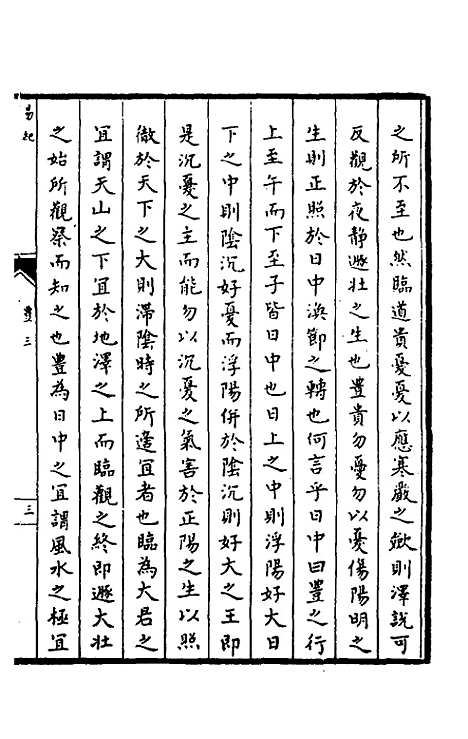 之所不至也然臨道貴憂憂以應寒嚴之欲則澤說可
反觀於夜靜遯壯之生也豊貴勿憂勿以憂傷陽明之
生則正照於日中渙節之轉也何言乎日中曰豊之行
上至午而下至子皆日中也日上之中則浮陽好大日
下之中則陰沉好憂而浮陽併於陰沉則好大之王即
是沉憂之主而能勿以沉憂之氣害於正陽之生以照
徹於天下之大則滯陰時之所逢宜者也臨為大君之
宜謂天山之下宜於地澤之上而臨觀之終即遯大壯
之始所觀察而知之也豊為日中之宜謂風水之極宜
易紀
豊三
三